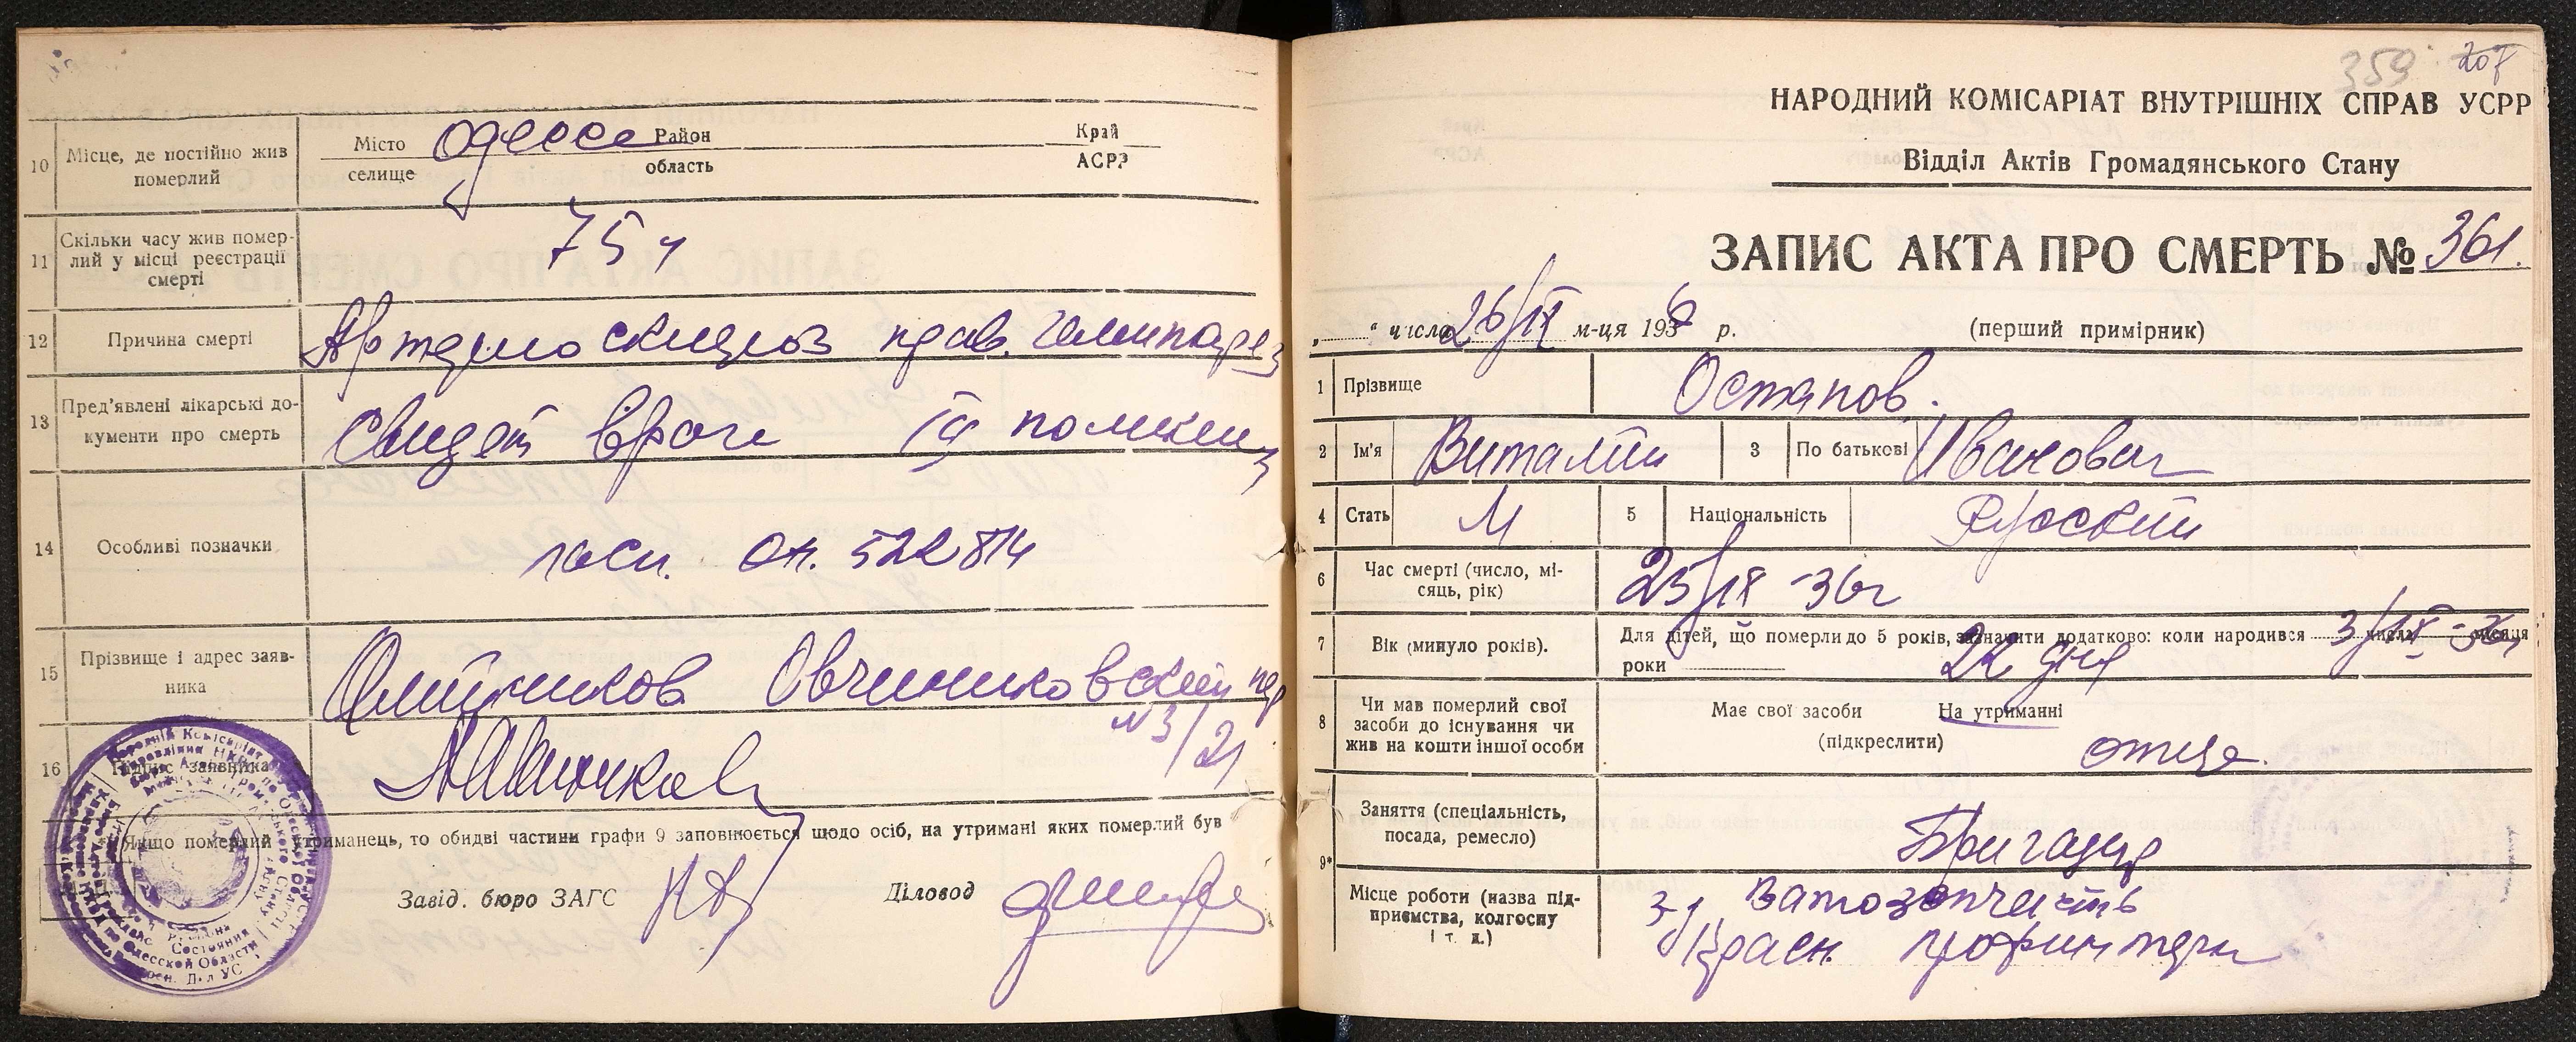 10 Місце, де постійно жив померлий
Місто селище Одесса Район область Край АСРР
11 Скільки часу жив померлий у місці реєстрації смерті
75 л
12 Причина смерті
Артериосклероз прав. гемипарез
13 Пред’явлені лікарські документи про смерть
Свидет врача поликлин
14 Особливі позначки
пасп. 522814
15 Прізвище і адрес заявника
Олейников Овчинниковский пер
№ 3/21
16 Підпис заявника
*) Якщо померлий утриманець, то обидві частини графи 9 заповнюється щодо осіб, на утримані яких померлий був
Завід. бюро ЗАГС
Діловод
359 207
НАРОДНИЙ КОМІСАРІАТ ВНУТРІШНІХ СПРАВ УСРР
Відділ Актів Громадянського Стану
ЗАПИС АКТА ПРО СМЕРТЬ № 361.
„ “ числа 26/IX м-ця 1936 р. (перший примірник)
1 Прізвище Остапов.
2 Ім’я Виталий 3 По батькові Иванович
4 Стать М 5 Національність Русский
6 Час смерті (число, місяць, рік) 25/IX -36г
7 Вік (минуло років). Для дітей, що померли до 5 років, зазначити додатково: коли народився 3/IX - 36г числа місяця
роки 22 дня
8 Чи мав померлий свої засоби до існування чи жив на кошти іншої особи
Має свої засоби На утриманні
(підкреслити) отца.
9* Заняття (спеціальність, посада, ремесло)
Бригадир
Місце роботи (назва підприємства, колгоспу і т. д.)
з-д Автозапчасть
Красн. профинтерн